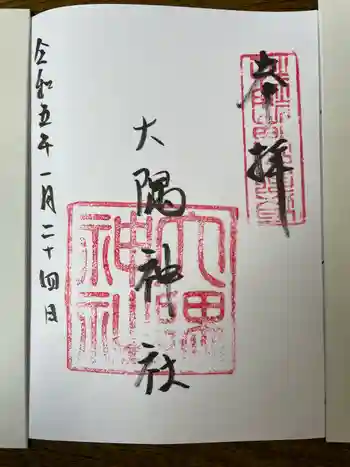 奉拝
大隅神社
令和五年一月二十四日
大隅神社